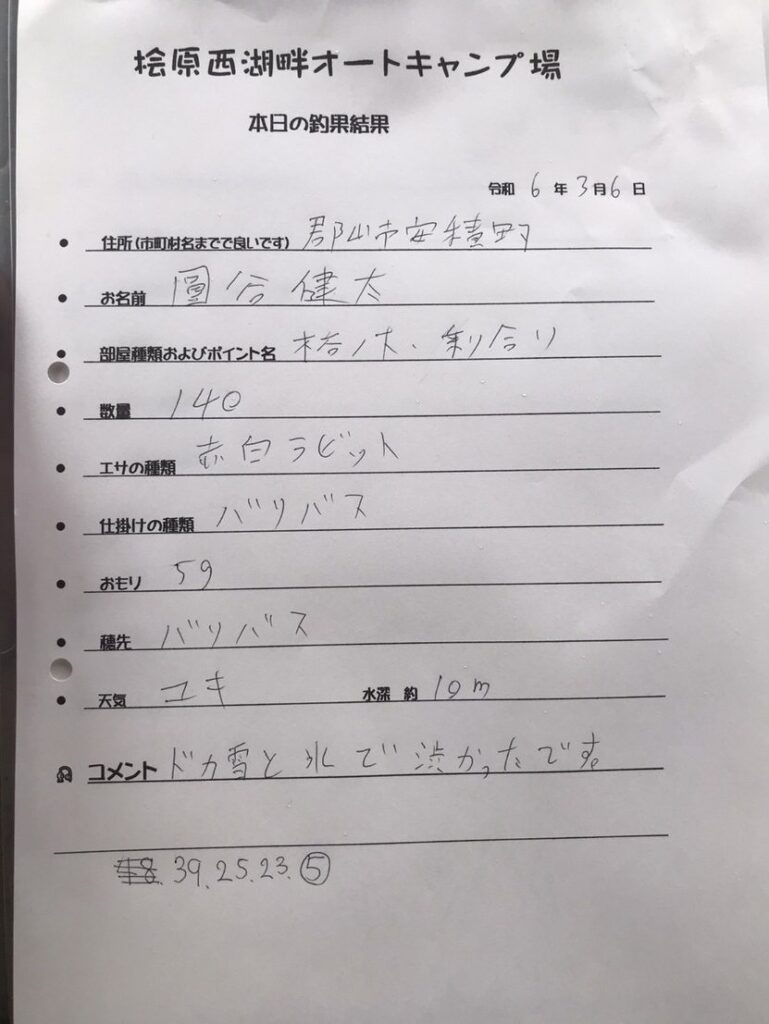 桧原西湖畔オートキャンプ場
本日の釣果結果
令和 6 年 3 月 6 日
● 住所(市町村名までで良いです) 郡山市安積町
● お名前 圓谷 健太
● 部屋種類およびポイント名 桔ノ木、乗り合り
● 数量 140
● エサの種類 赤白ラビット
● 仕掛けの種類 バリバス
● おもり 5g
● 穂先 バリバス
● 天気 ユキ 水深 約 10m
コメント ドカ雪と氷で渋かったです。
39.25.23.⑤